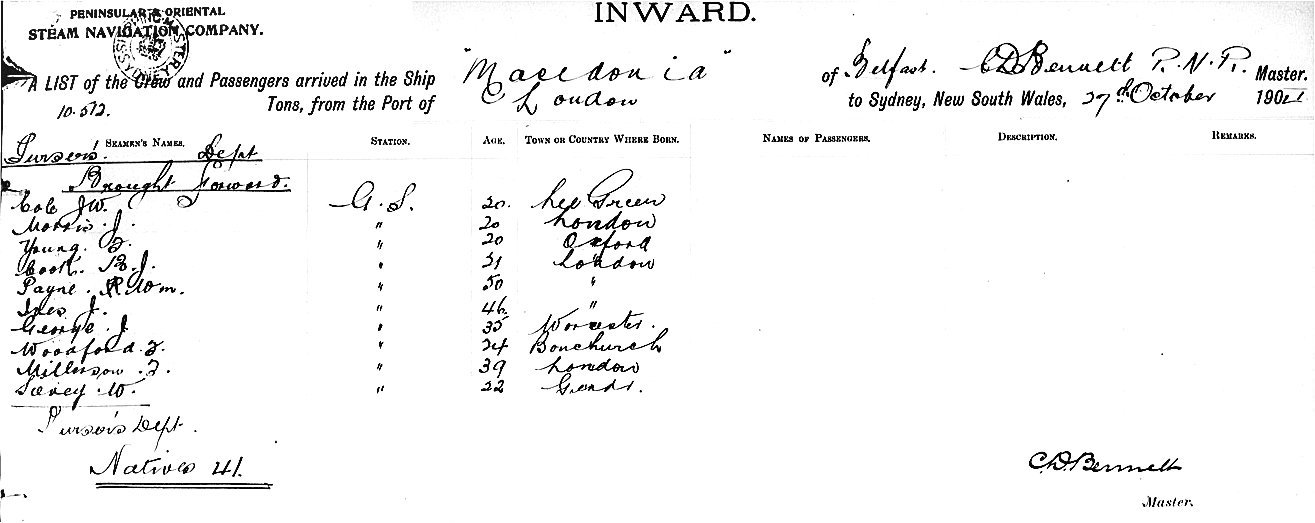 PENINSULAR & ORIENTAL
STEAM NAVIGATION COMPANY.
INWARD.
A LIST of the Crew and Passengers arrived in the Ship "Macedonia" of Belfast. CD Bennett R.N.R. Master.
10.512. Tons, from the Port of London to Sydney, New South Wales, 27th October 190
SEAMEN'S NAMES. STATION. AGE. TOWN OR COUNTRY WHERE BORN. NAMES OF PASSENGERS. DESCRIPTION. REMARKS.
Purser's Dept
Brought Forward.
Cole J W. G.S. 20. Lee Green
Morris. J. " 20 London
Young. F. " 20 Oxford
Cook. B. J. " 31 London
Payne. Wm. " 50 "
Ives J. " 46. "
George. J " 35 Worcester.
Woodford. F. " 24 Bonchurch
Millerson. F. " 39 London
W. " 22
Purser's Dept.
Natives 41.
C.D. Bennett
Master.